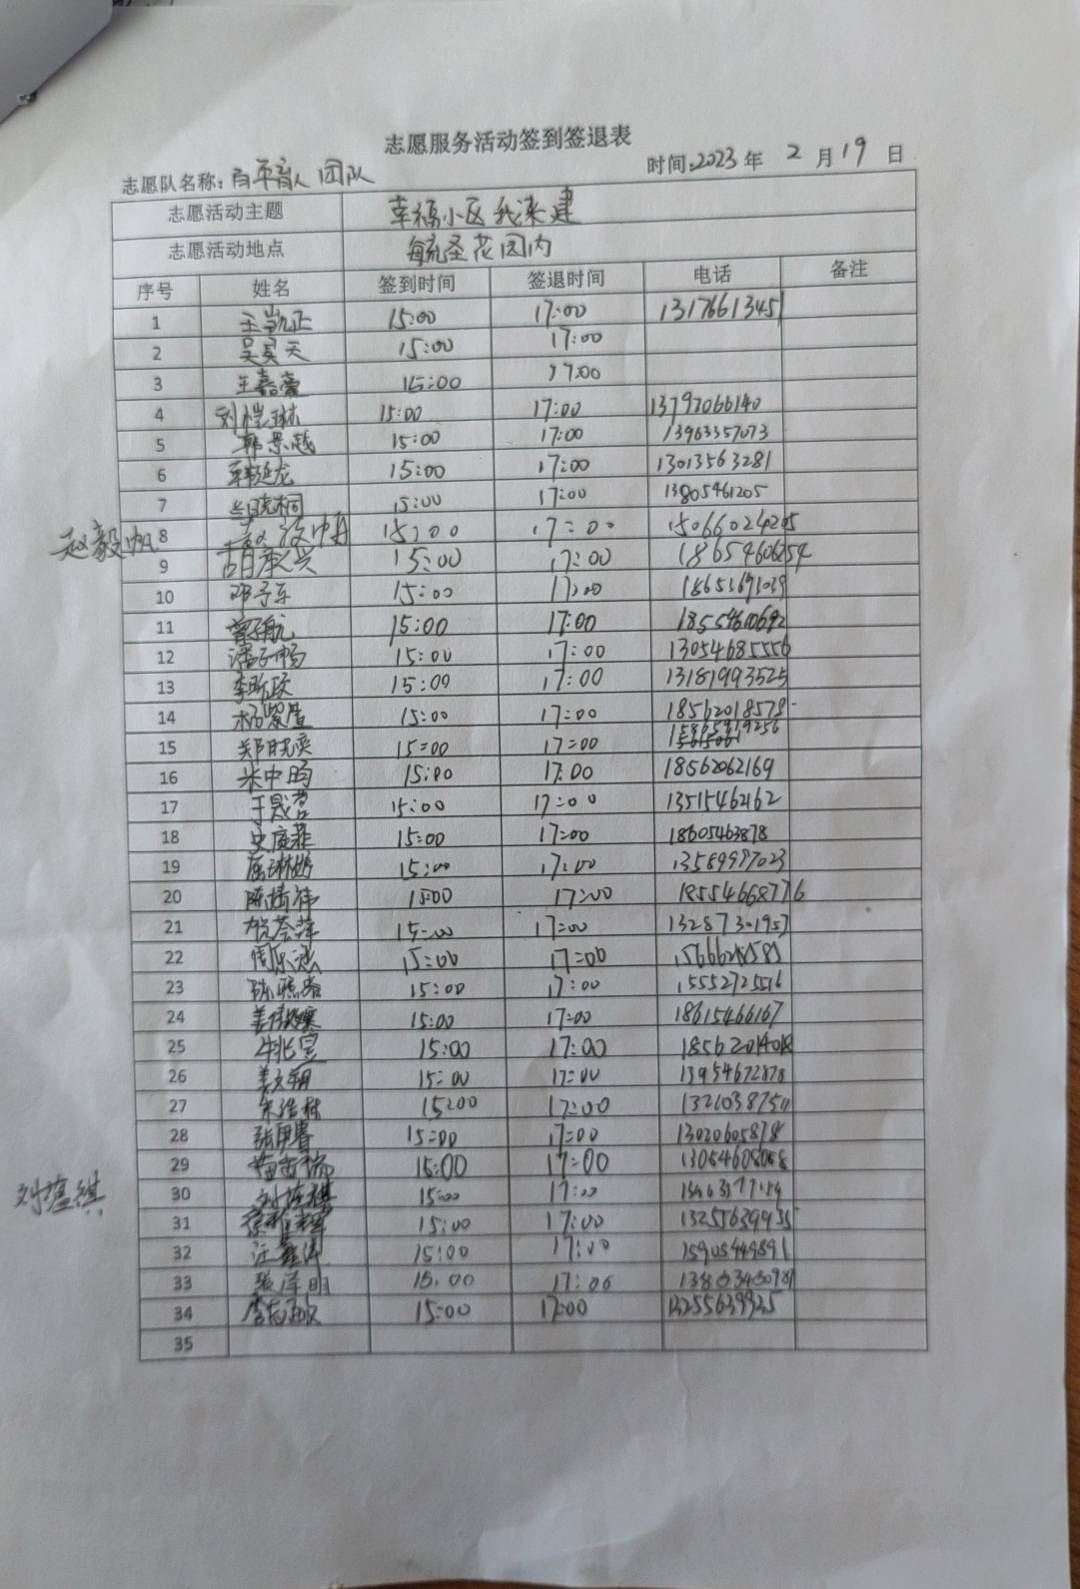 志愿服务活动签到签退表
志愿队名称: 育人团队 时间:2023年 2月19日
志愿活动主题 幸福小区我来建
志愿活动地点 花园内
序号 姓名 签到时间 签退时间 电话 备注
1 王凯正 15:00 17:00 13176613451
2 吴昊天 15:00 17:00
3 王嘉豪 15:00 17:00
4 刘恺琳 15:00 17:00 13797066140
5 郭景越 15:00 17:00 13963357073
6 韩延龙 15:00 17:00 13013563281
7 15:00 17:00 13805461205
赵毅帆 8 15:00 17:00 15066024205
9 胡承兴 15:00 17:00 18654606254
10 邓子车 15:00 17:00
11 曾子航 15:00 17:00
12 潘子畅 15:00 17:00 13054685556
13 李昕 15:00 17:00 13181993525
14 杨紫萱 15:00 17:00 18562018578
15 郑晓奕 15:00 17:00
16 米中昀 15:00 17:00 18562062169
17 于晟 15:00 17:00 13515462162
18 史庭菲 15:00 17:00 18605463878
19 15:00 17:00 13589997023
20 陈 15:00 17:00 18554668776
21 贺荟萍 15:00 17:00 13287301957
22 周乐 15:00 17:00
23 15:00 17:00 15552725516
24 姜 15:00 17:00 18615466167
25 牛兆宣 15:00 17:00 18562014018
26 姜文朝 15:00 17:00 13954672878
27 朱浩林 15:00 17:00
28 张 15:00 17:00 13020605878
29 15:00 17:00 13054608058
刘蕴祺 30 15:00 17:00
31 15:00 17:00 13255639935
32 汪 15:00 17:00 15905449891
33 张泽明 15:00 17:00
34 15:00 17:00 13255639935
35